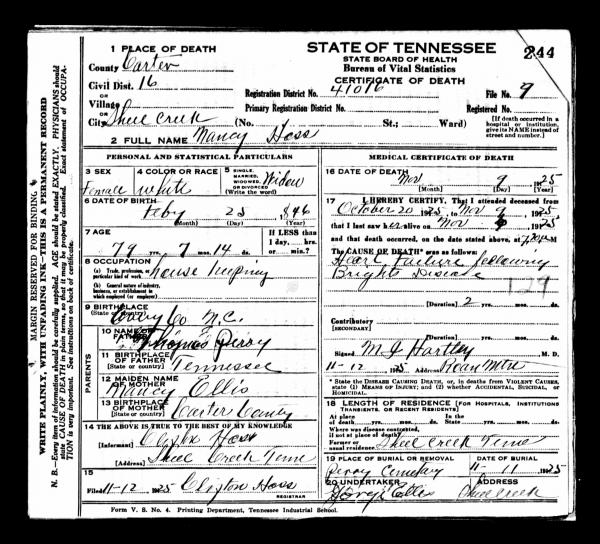 244
STATE OF TENNESSEE
STATE BOARD OF HEALTH
Bureau of Vital Statistics
CERTIFICATE OF DEATH
1 PLACE OF DEATH
County Carter
Civil Dist. 16
OR
Village
OR
City Shell Creek (No. St.; Ward)
Registration District No. 41016 File No. 9
Primary Registration District No. Registered No.
[If death occurred in a hospital or institution, give its NAME instead of street and number.]
2 FULL NAME Nancy Hoss
PERSONAL AND STATISTICAL PARTICULARS
3 SEX Female
4 COLOR OR RACE white
5 SINGLE, MARRIED, WIDOWED, OR DIVORCED (Write the word) Widow
6 DATE OF BIRTH
Feby 23 1846
(Month) (Day) (Year)
7 AGE
79 yrs. 7 mos. 14 ds.
If LESS than 1 day, hrs. or min.?
8 OCCUPATION
(a) Trade, profession, or particular kind of work House keeping
(b) General nature of industry, business, or establishment in which employed (or employer)
9 BIRTHPLACE (State or country) Avery Co N.C.
PARENTS
10 NAME OF FATHER Thomas Perry
11 BIRTHPLACE OF FATHER (State or country) Tennessee
12 MAIDEN NAME OF MOTHER Nancy Ellis
13 BIRTHPLACE OF MOTHER (State or country) Carter County
14 THE ABOVE IS TRUE TO THE BEST OF MY KNOWLEDGE
[Informant] Hoss
[Address] Shell Creek Tenn
15
Filed 11-12 1925 Clifton Hoss
REGISTRAR
MEDICAL CERTIFICATE OF DEATH
16 DATE OF DEATH
Nov 9 1925
(Month) (Day) (Year)
17 I HEREBY CERTIFY, That I attended deceased from
October 20 1925, to Nov 9, 1925
that I last saw her alive on Nov 1925
and that death occurred, on the date stated above, at M
The CAUSE OF DEATH* was as follows:
Heart Failure following
Brights Disease
129
[Duration] 2 yrs. mos. ds.
Contributory
[SECONDARY]
[Duration] yrs. mos. ds.
Signed M. D.
11-12 1925 Address Roan Mtn
* State the DISEASE CAUSING DEATH, or, in deaths from VIOLENT CAUSES, state (1) MEANS OF INJURY; and (2) whether ACCIDENTAL, SUICIDAL, or HOMICIDAL.
18 LENGTH OF RESIDENCE (FOR HOSPITALS, INSTITUTIONS TRANSIENTS, OR RECENT RESIDENTS)
At place of death yrs. mos. ds. In the State yrs. mos. ds.
Where was disease contracted, if not at place of death?
Former or usual residence Shell Creek Tenn
19 PLACE OF BURIAL OR REMOVAL Perry Cemetary
DATE OF BURIAL 11-11 1925
20 UNDERTAKER Ellis
ADDRESS Creek
Form V. S. No. 4. Printing Department, Tennessee Industrial School.
MARGIN RESERVED FOR BINDING
WRITE PLAINLY, WITH UNFADING INK—THIS IS A PERMANENT RECORD
N. B.—Every item of information should be carefully supplied. AGE should be stated EXACTLY. PHYSICIANS should state CAUSE OF DEATH in plain terms, so that it may be properly classified. Exact statement of OCCUPATION is very important. See instructions on back of certificate.